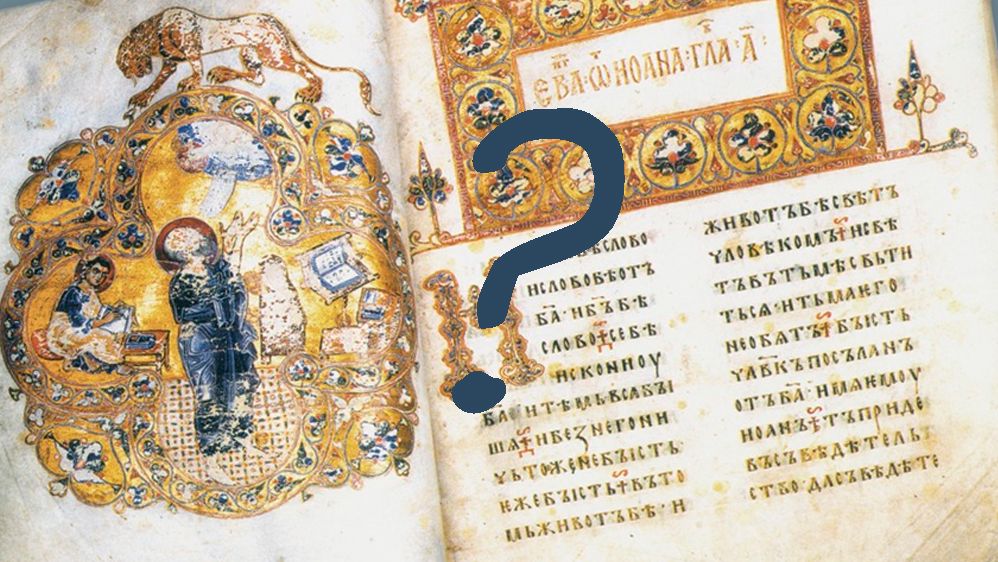 ЕВА·Ѡ ИОАНА·ГЛА·А҃·
СЛОВО
ИСЛОВОБѢОТЪ
БА҃·ИБЪ҃БѢ
СЛОВО СЕБѢ
ИСКОНИОУ
БА҃ ИТѢМЬВСѦБЫ
ШѦ ИБЕЗНЕГОНИ
ЧЬТОЖЕНЕБЪІСТЬ
ЕЖЕБЪІСТЬ ВЪТО
МЬЖИВОТЪБѢ·И
ЖИВОТЪБѢСВѢТЪ
ЧЛОВѢКОМЪ ИСВѢ
ТЪВЪТЬМѢСВЬТИ
ТЬСѦ·ИТЬМАЕГО
НЕОБѦТЪ БЪІСТЬ
ЧЛВ҃КЪПОСЪЛАНЪ
ОТЪБА҃·ИМѦЕМОУ
ИОАНЪ ТЪПРИДЕ
ВЪСЪВѢДѢТЕЛЬ
СТВО·ДАСЪВѢДѢТЕ